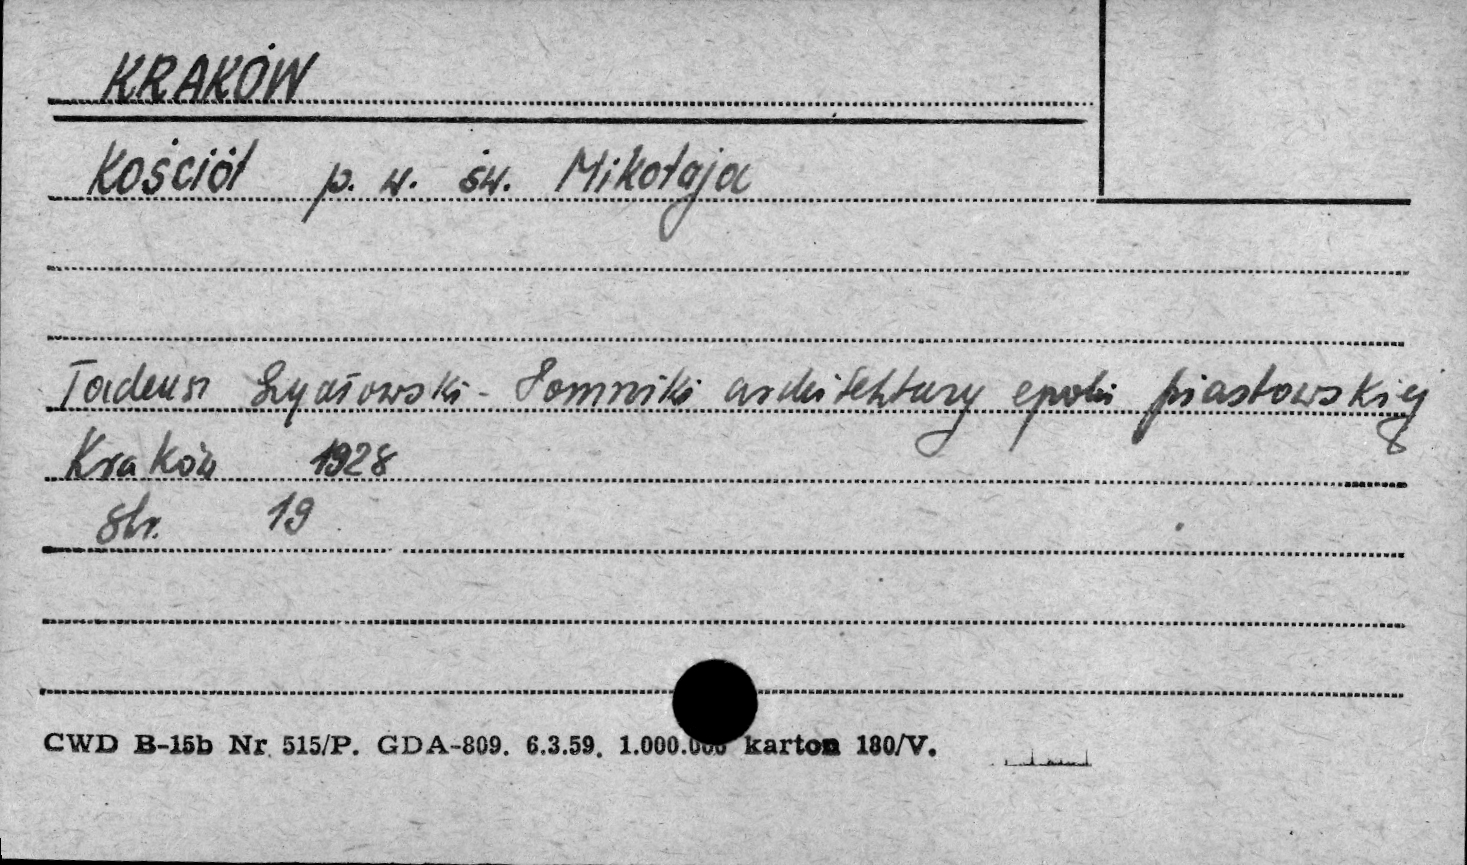 KRAKÓW
Kościół p. w. św. Mikołaja
Tadeusz Szydłowski - Pomniki architektury epoki piastowskiej
Kraków 1928
str. 19
CWD B-15b Nr 515/P. GDA-809. 6.3.59. 1.000.000 karton 180/V.